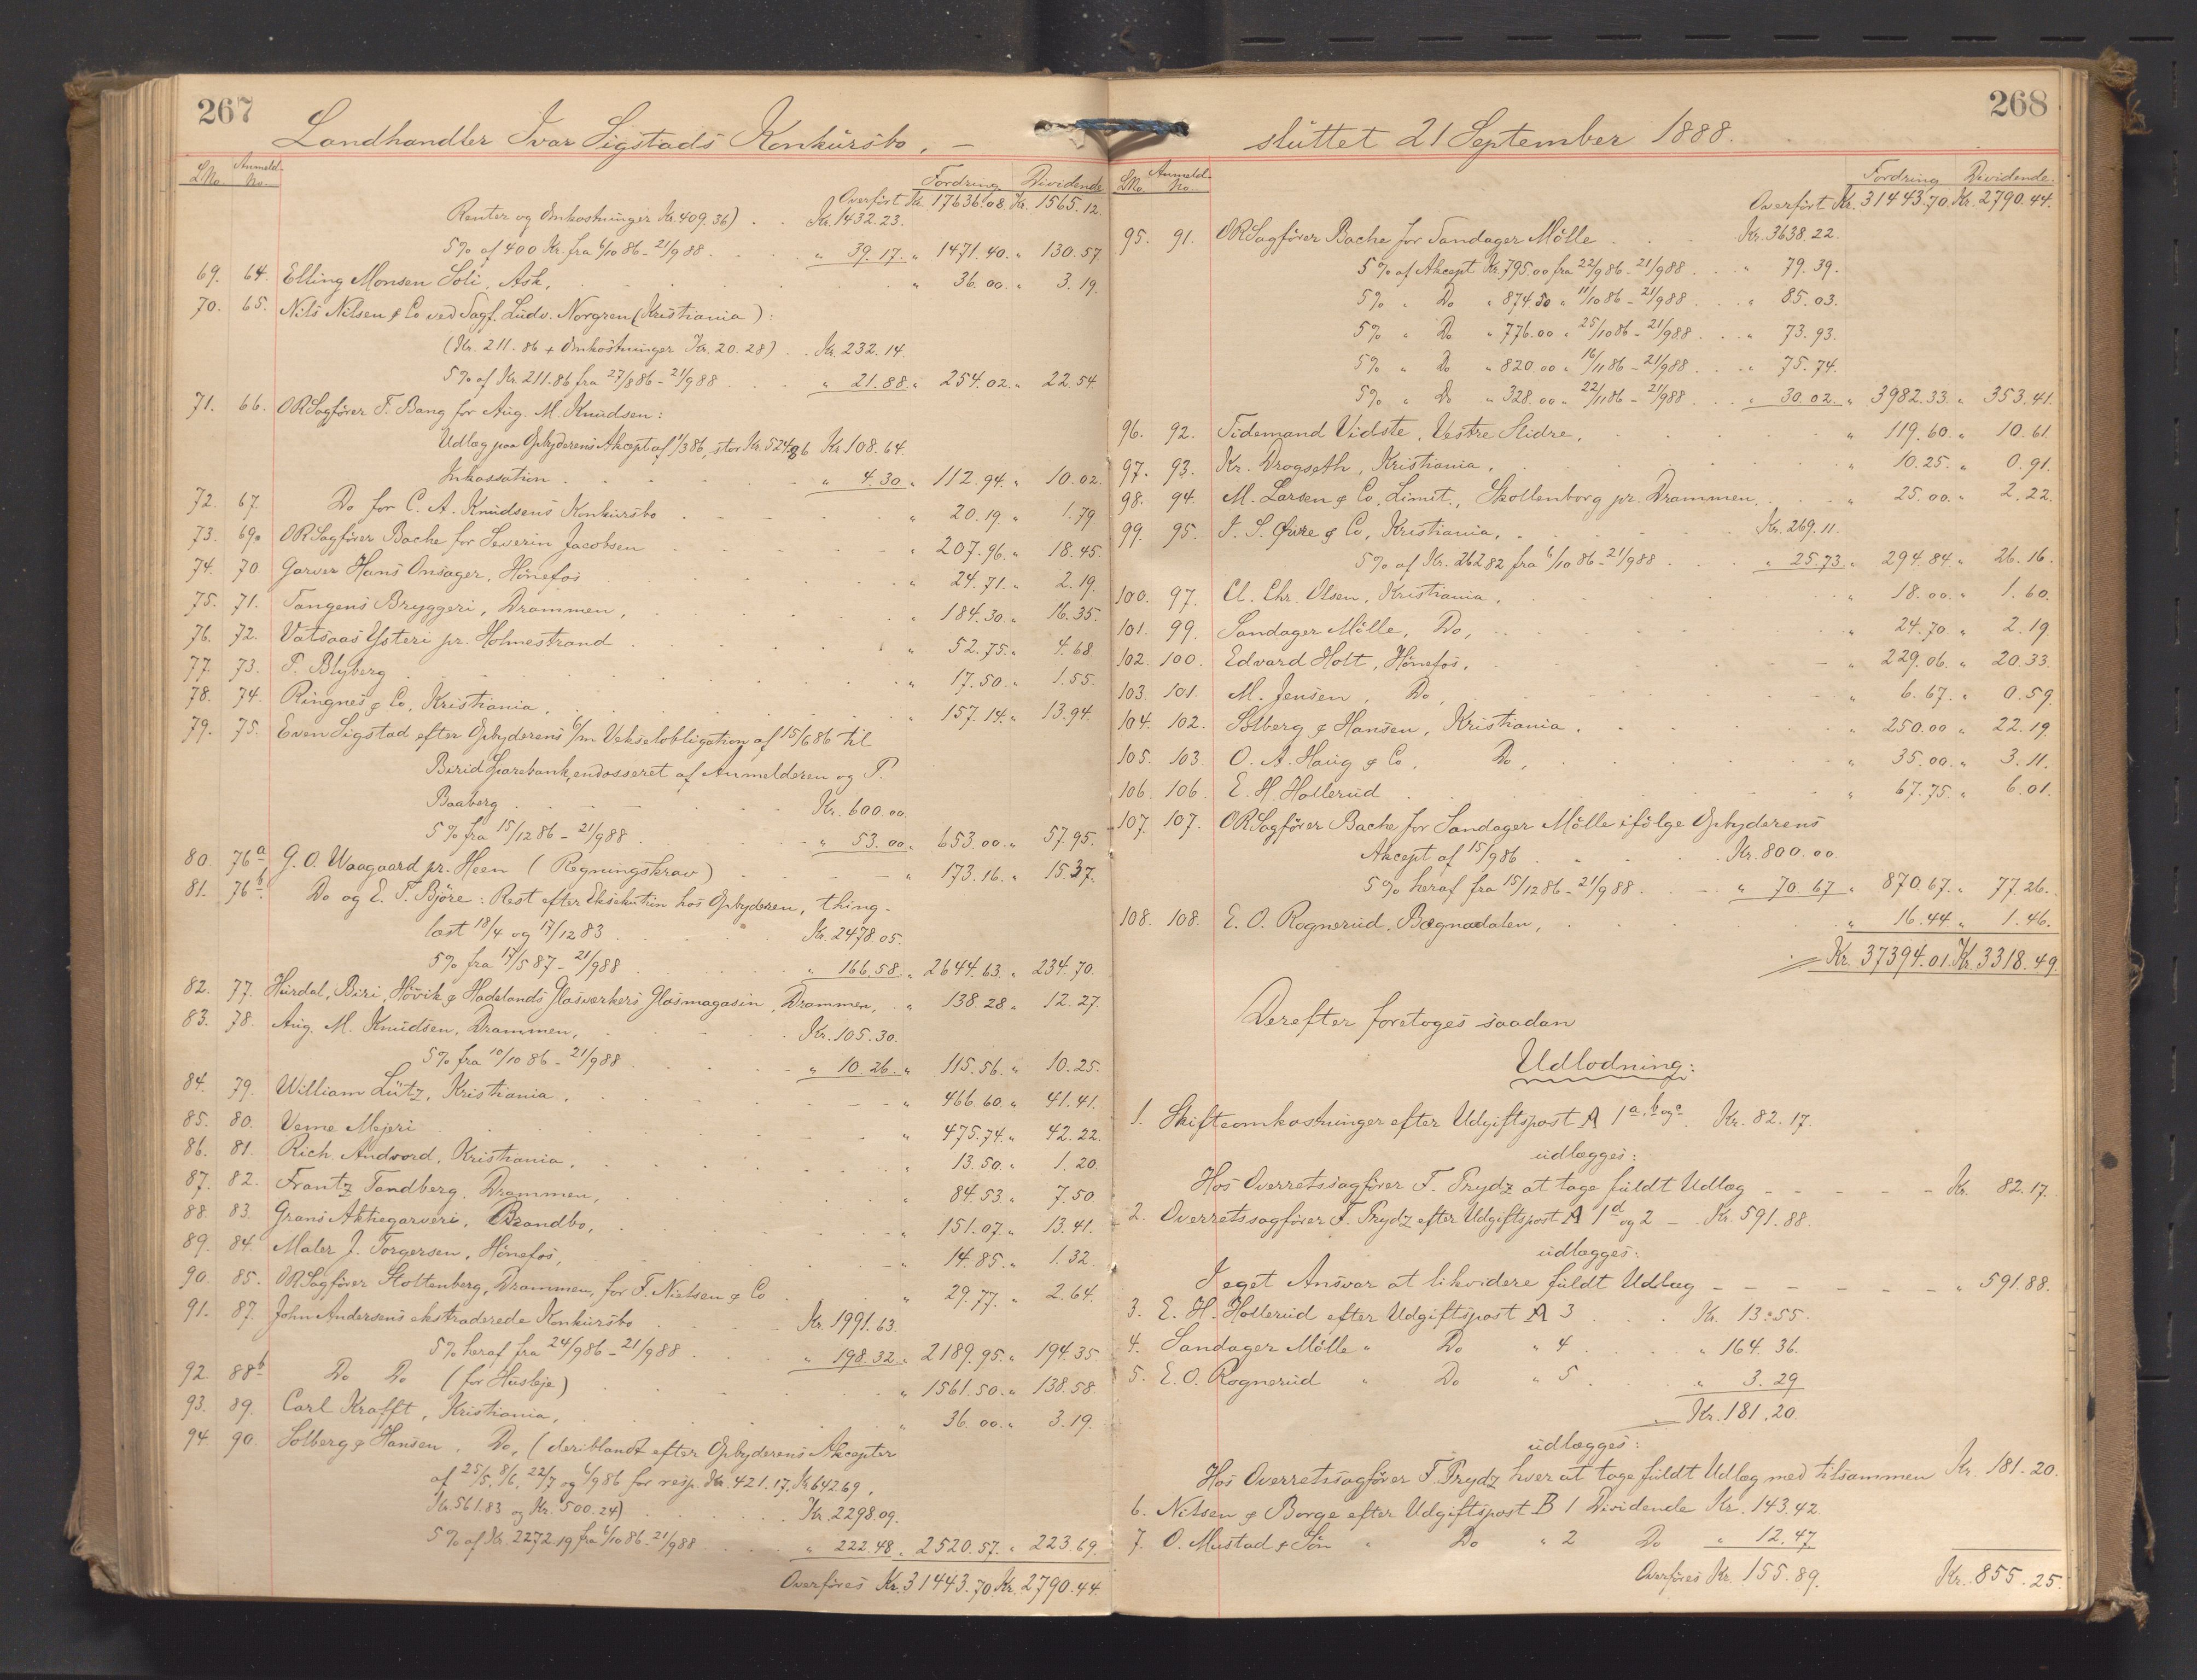 267
Landhandler Ivar Sigstads Konkursbo. –
LNo. Anmeld. No. Fordring Dividende
Overført Kr. 17636.08. Kr. 1565.12.
Renter og Omkostninger Kr. 409.36) . . Kr. 1432.23.
5% af 400 Kr. fra 6/10 86 - 21/9 88 . . . " 39.17. " 1471.40. " 130.57
69. 64. Elling Monsen Soli, Ask, . . . " 36.00. " 3.19.
70. 65. Nils Nilsen & Co ved Sagf. Ludv. Norgren (Kristiania):
(Kr. 211.86 + Omkostninger Kr. 20.28) . . Kr. 232.14.
5% af Kr. 211.86 fra 27/8 86 - 21/9 88 . . . " 21.88. " 254.02. " 22.54.
71. 66. ORSagfører F. Bang for Aug. M. Knudsen:
Udlæg paa Opbyderens Akcept af 1/3 86, stor Kr. 524.86 Kr. 108.64.
Inkassation . . . " 4.30. " 112.94. " 10.02.
72. 67. Do for C. A. Knudsens Konkursbo . . . " 20.19. " 1.79
73. 69a ORSagfører Bache for Severin Jacobsen . . . " 207.96. " 18.45.
74. 70. Garver Hans Onsager, Hønefos . . . " 24.71. " 2.19.
75. 71. Tangens Bryggeri, Drammen, . . . " 184.30. " 16.35.
76. 72. Vatsaas Ysteri pr. Holmestrand . . . " 52.75. " 4.68.
77. 73. P. Blyberg . . . " 17.50. " 1.55.
78. 74. Ringnes & Co, Kristiania, . . . " 157.14. " 13.94.
79. 75. Even Sigstad efter Opbyderens 6/m Vekselobligation af 15/6 86 til
Birid Sparebank, endosseret af Anmelderen og P.
Baaberg . . . Kr. 600.00.
5% fra 15/12 86 - 21/9 88 . . . " 53.00. " 653.00. " 57.95.
80. 76a G. O. Waagaard pr. Heen (Regningskrav) . . . " 173.16. " 15.37.
81. 76b. Do og E. T. Bjøre: Rest efter Eksekution hos Opbyderen, thing-
læst 18/4 og 17/12 83 . . . Kr. 2478.05.
5% fra 17/5 87 - 21/9 88 . . . " 166.58. " 2644.63. " 234.70.
82. 77. Hurdal, Biri, Høvik & Hadelands Glasværkers Glasmagasin, Drammen, . " 138.28. " 12.27.
83. 78. Aug. M. Knudsen, Drammen, . . . Kr. 105.30.
5% fra 10/10 86 - 21/9 88 . . . " 10.26. " 115.56. " 10.25.
84. 79. William Lütz, Kristiania, . . . " 466.60. " 41.41.
85. 80. Veme Mejeri . . . " 475.74. " 42.22.
86. 81. Rich. Andvord, Kristiania, . . . " 13.50. " 1.20.
87. 82. Frantz Tandberg, Drammen, . . . " 84.53. " 7.50
88. 83. Grans Aktiegarveri, Brandbo, . . . " 151.07. " 13.41.
89. 84. Maler J. Torgersen, Hønefos, . . . " 14.85. " 1.32.
90. 85. ORSagfører Stoltenberg, Drammen, for F. Nielsen & Co . . " 29.77. " 2.64.
91. 87. John Andersens ekstraderede Konkursbo . . . Kr. 1991.63.
5% heraf fra 24/9 86 - 21/9 88 . . . " 198.32. " 2189.95. " 194.35.
92. 88b Do Do (for Husleje) . . . " 1561.50. " 138.58.
93. 89. Carl Krafft, Kristiania, . . . " 36.00. " 3.19.
94. 90. Solberg & Hansen, Do, (deriblandt efter Opbyderens Akcepter
af 25/5, 8/6, 22/7 og 6/9 86 for resp. Kr. 421.17, Kr 642.69,
Kr. 561.83 og Kr. 500.24) . . . Kr. 2298.09.
5% af Kr. 2272.19 fra 6/10 86 - 21/9 88 . . . " 222.48. " 2520.57. " 223.69.
Overføres Kr. 31443.70 Kr. 2790.44
268
sluttet 21 September 1888.
LNo. Anmeld. No. Fordring Dividende.
Overført Kr. 31443.70. Kr. 2790.44.
95. 91. ORSagfører Bache for Sandager Mølle . . . Kr. 3638.22.
5% af Akcept Kr. 795.00 fra 22/9 86 - 21/9 88 . . . " 79.39.
5% " Do " 874.50 " 11/10 86 - 21/9 88 . . . " 85.03.
5% " Do " 776.00 " 25/10 86 - 21/9 88 . . . " 73.93.
5% " Do " 820.00 " 16/11 86 - 21/9 88 . . . " 75.74.
5% " Do " 328.00 " 22/11 86 - 21/9 88 . . . " 30.02. " 3982.33. " 353.41.
96. 92. Tidemand Vidste, Vestre Slidre, . . . " 119.60. " 10.61.
97. 93. Kr. Drogseth, Kristiania, . . . " 10.25. " 0.91.
98. 94. M. Larsen & Co. Limit., Skollenborg pr. Drammen . . . " 25.00. " 2.22.
99. 95. I. S. Øvre & Co, Kristiania, . . . Kr. 269.11.
5% af Kr. 262.82 fra 6/10 86 - 21/9 88 . . . " 25.73 " 294.84. " 26.16.
100. 97. Cl. Chr. Olsen, Kristiania, . . . " 18.00. " 1.60.
101. 99. Sandager Mølle, Do, . . . " 24.70 " 2.19.
102. 100. Edvard Holt, Hønefos, . . . " 229.06. " 20.33.
103. 101. M. Jensen, Do, . . . " 6.67. " 0.59.
104. 102. Solberg & Hansen, Kristiania . . . " 250.00 " 22.19.
105. 103. O. A. Haug & Co, Do, . . . " 35.00. " 3.11.
106. 106. E. H. Hollerud . . . " 67.75. " 6.01.
107. 107. ORSagfører Bache for Sandager Mølle ifølge Opbyderens
Akcept af 15/9 86 . . . Kr. 800.00.
5% heraf fra 15/12 86 - 21/9 88 . . . " 70.67 " 870.67. " 77.26.
108. 108. E. O. Rognerud, Bægnadalen, . . . " 16.44 " 1.46.
Kr. 37394.01 Kr. 3318.49.
Derefter foretoges saadan
Udlodning:
1. Skifteomkostninger efter Udgiftspost A 1 a, b og c. Kr. 82.17.
udlægges:
Hos Overretssagfører F. Prydz at tage fuldt Udlæg – – – – – Kr. 82.17.
2. Overretssagfører F. Prydz efter Udgiftspost A 1 d og 2 – Kr. 591.88.
udlægges:
I eget Ansvar at likvidere fuldt Udlæg – – – – – – " 591.88.
3. E. H. Hollerud efter Udgiftspost A 3 . . . Kr. 13.55.
4. Sandager Mølle " Do " 4 . . . " 164.36.
5. E. O. Rognerud " Do " 5 . . . " 3.29
Kr. 181.20.
udlægges:
Hos Overretssagfører F. Prydz hver at tage fuldt Udlæg med tilsammen Kr. 181.20.
6. Nilsen & Borge efter Udgiftspost B 1 Dividende Kr. 143.42.
7. O. Mustad & Søn " Do " 2 Do " 12.47
Overføres Kr. 155.89. Kr. 855.25.